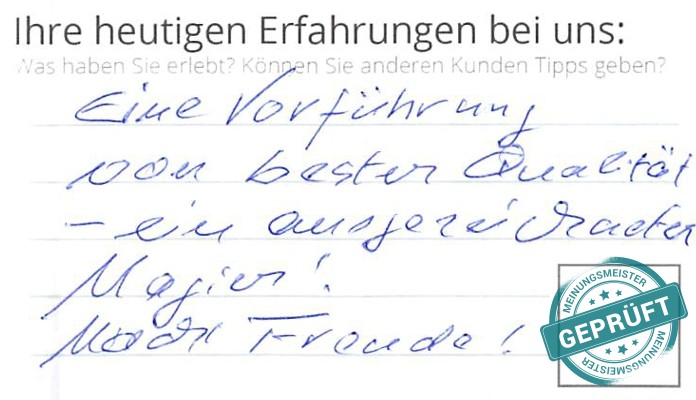 Ihre heutigen Erfahrungen bei uns:
Was haben Sie erlebt? Können Sie anderen Kunden Tipps geben?
Eine Vorführung
von bester Qualität
- ein ausgezeichneter
Magier!
Macht Freude!
MEINUNGSMEISTER
GEPRÜFT
MEINUNGSMEISTER